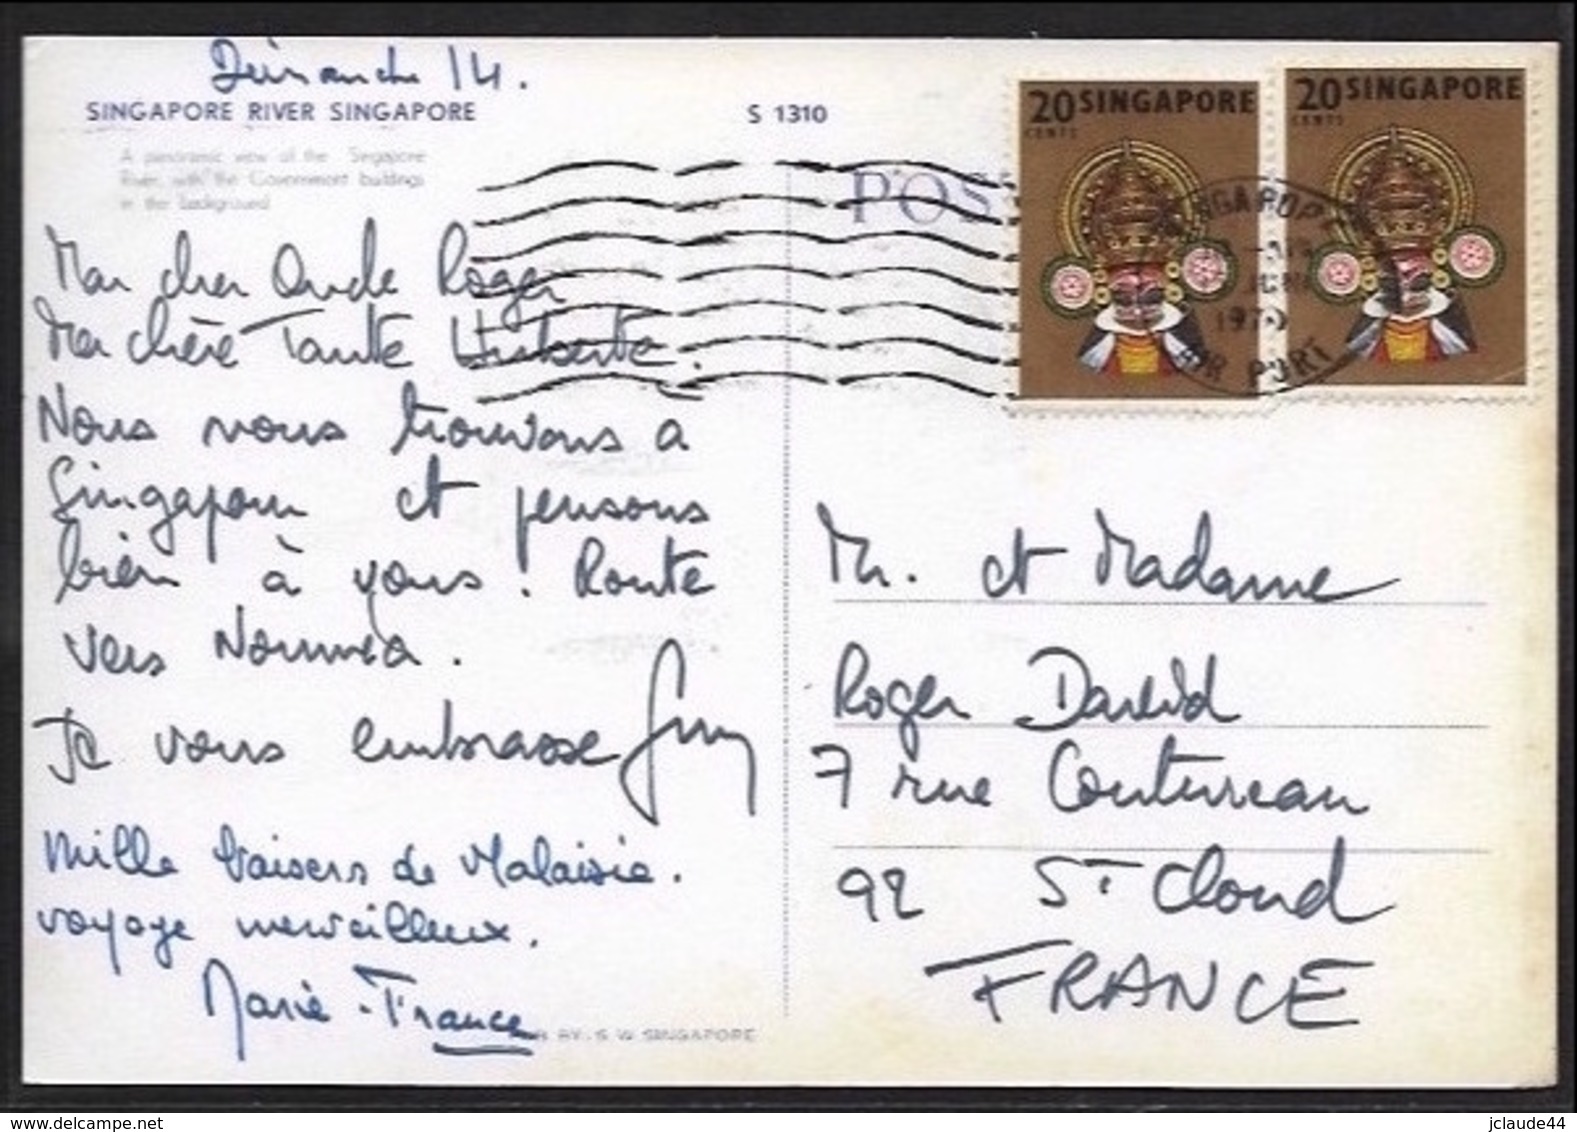 Dimanche 14.
SINGAPORE RIVER SINGAPORE
S 1310
A panoramic view of the Singapore
River, with the Government buildings
in the background
POS
20 SINGAPORE
CENTS
20 SINGAPORE
CENTS
1970
AIR PORT
Mon cher Oncle Roger
Ma chère Tante Huberte.
Nous nous trouvons à
Singapour et pensons
bien à vous. Route
vers Nouméa.
Je vous embrasse Guy
Mille baisers de Malaisie.
voyage merveilleux.
Marie-France
BY. S. W. SINGAPORE
Mr. et Madame
Roger David
7 rue Coutureau
92 St Cloud
FRANCE
jclaude44